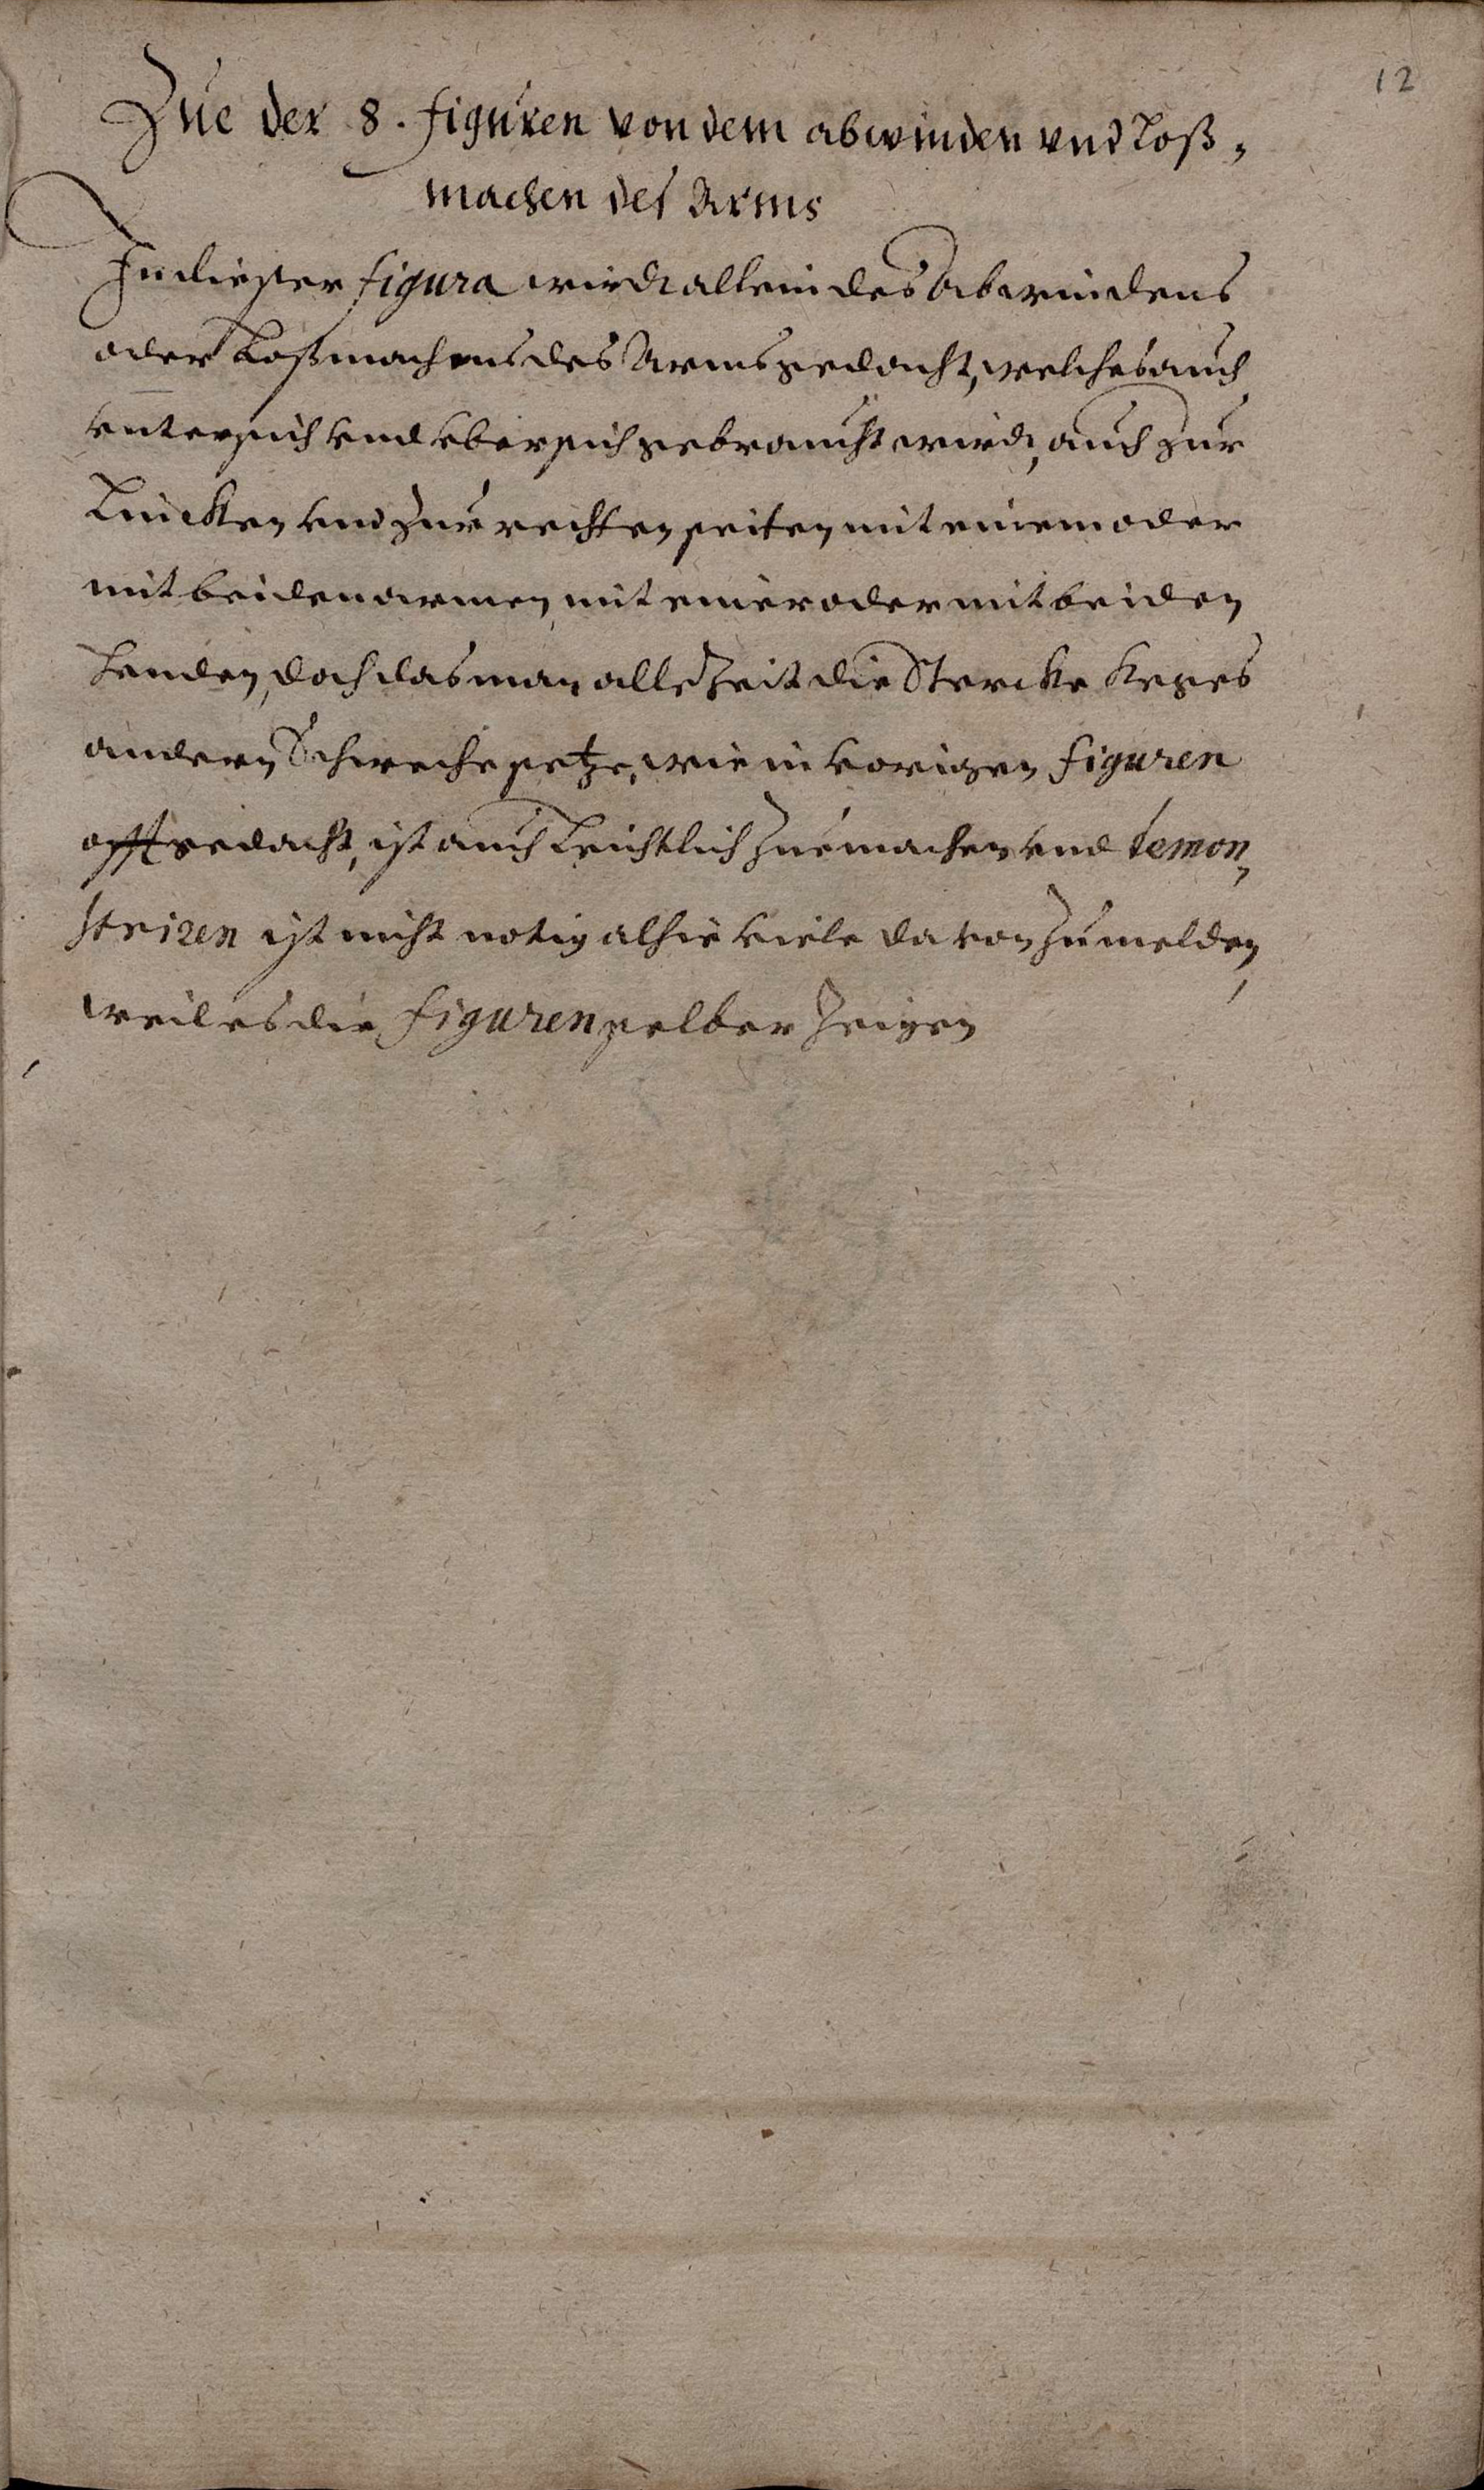 12
Zue der 8. figuren von dem abwinden vnd Loß,
machen des Arms
In dießer figura wirdt allein des Abwindens
oder Loßmachens des Arms gedacht, welches auch
vntersich vnd vbersich gebraucht wirdt, auch zur
Lincken vnd zur rechten seiten mit einem oder
mit beiden armen, mit einer oder mit beiden
henden, doch das man alle Zeit die Stercke keges
andern Schweche setze, wie in vorigen figuren
offt gedacht, ist auch Leichtlich Zue machen vnd demon,
striren ist nicht notig alhie viele da von Zu melden,
weil es die figuren selber Zeigen